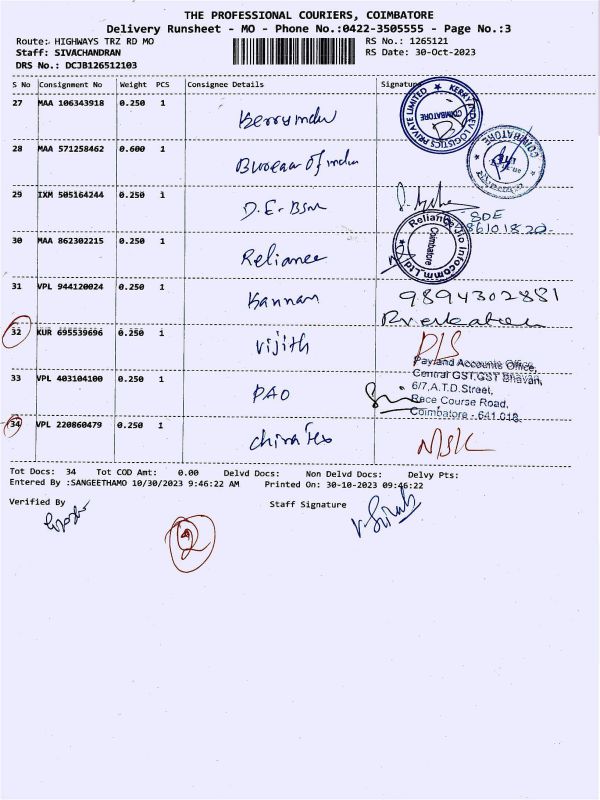 THE PROFESSIONAL COURIERS, COIMBATORE
Delivery Runsheet - MO - Phone No.:0422-3505555 - Page No.:3
Route: HIGHWAYS TRZ RD MO RS No.: 1265121
Staff: SIVACHANDRAN RS Date: 30-Oct-2023
DRS No.: DCJB126512103
S No Consignment No Weight PCS Consignee Details Signature
27 MAA 106343918 0.250 1
KERRY INDEV LOGISTICS PRIVATE LIMITED
COIMBATORE
28 MAA 571258462 0.600 1
COIMBATORE
29 IXM 505164244 0.250 1 D.E- BSNL
SDE
30 MAA 862302215 0.250 1 Reliance
Reliance Jio Infocomm Ltd
Coimbatore
31 VPL 944120024 0.250 1 Kannan 9894302881
32 KUR 695539696 0.250 1 Vijith D/S
33 VPL 403104100 0.250 1 PAO
Payland Accounts Office,
Central GST,GST Bhavan,
6/7,A.T.D.Street,
Race Course Road,
Coimbatore - 641 018.
34 VPL 220860479 0.250 1 N/S/C
Tot Docs: 34 Tot COD Amt: 0.00 Delvd Docs: Non Delvd Docs: Delvy Pts:
Entered By :SANGEETHAMO 10/30/2023 9:46:22 AM Printed On: 30-10-2023 09:46:22
Verified By Staff Signature
2